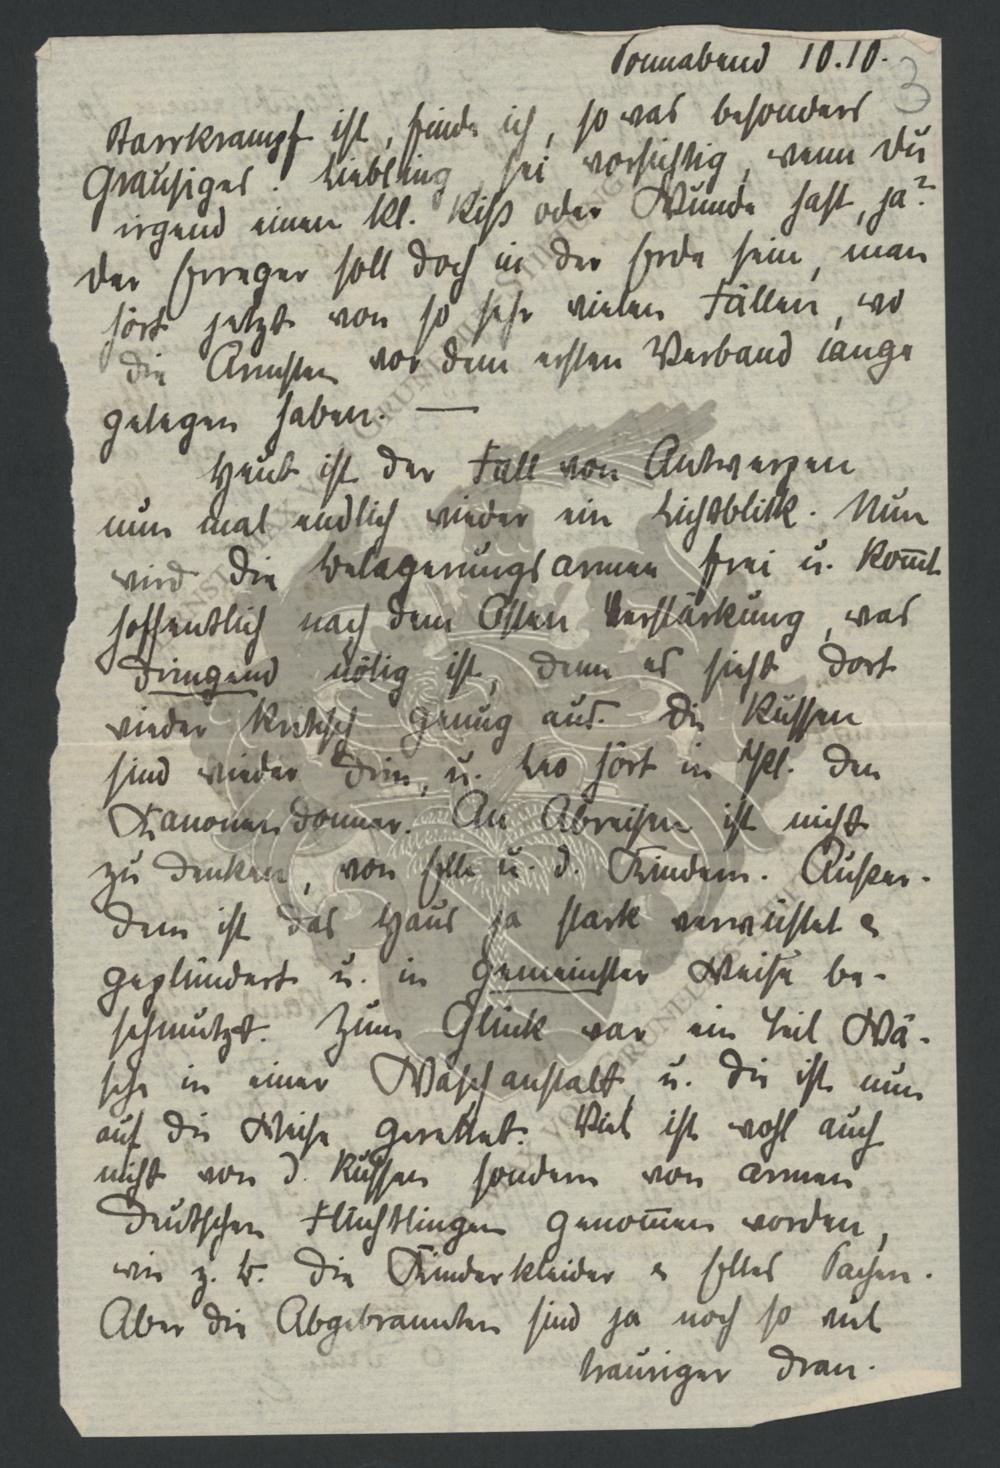 Sonnabend 10.10.
3
Starrkrampf ist, finde ich, so was besonders
Grausiges. Liebling sei vorsichtig, wenn Du
irgend einen kl. Riß oder Wunde hast, ja?
Der Erreger soll doch in der Erde sein, man
hört jetzt von so sehr vielen Fällen, wo
die Ärmsten vor dem ersten Verband lange
gelegen haben. —
Heut ist der Fall von Antwerpen
nun mal endlich wieder ein Lichtblick. Nun
wird die Belagerungsarmee frei u. kom̅t
hoffentlich nach dem Osten Verstärkung, was
dringend nötig ist, denn es sieht dort
wieder kritisch genug aus. Die Russen
sind wieder drin, u. Leo hört in den
Kanonendonner. An Abreisen ist nicht
zu denken, von Elle u. d. Kindern. Außer-
dem ist das Haus ja stark verwüstet &
geplündert u. in gemeinster Weise be-
schmutzt. Zum Glück war ein Teil Wä-
sche in einer Waschanstalt, u. die ist nun
auf die Weise gerettet. Viel ist wohl auch
nicht von d. Russen sondern von armen
deutschen Flüchtlingen genom̅en worden,
wie z. B. die Kinderkleider & Elles Sachen.
Aber die Abgebrannten sind ja noch so viel
trauriger dran.